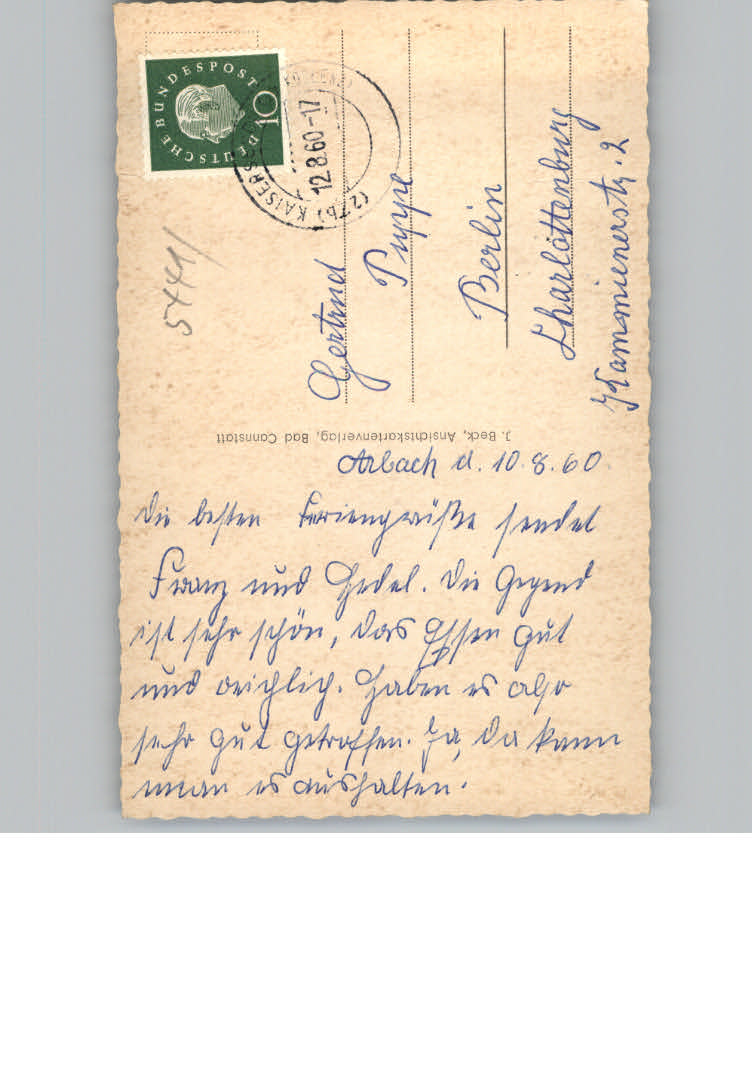 DEUTSCHE BUNDESPOST
10
12.8.60-17
(22b) KAISERS
5441/
Gertrud
Puppe
Berlin
Charlottenburg
Kamminerstr. 2
J. Beck, Ansichtskartenverlag, Bad Cannstatt
Arbach d. 10.8.60.
Die besten Feriengrüße sendet
Franz und Hedel. Die Gegend
ist sehr schön, das Essen gut
und reichlich. Haben es also
sehr gut getroffen. Ja, da kann
man es aushalten.